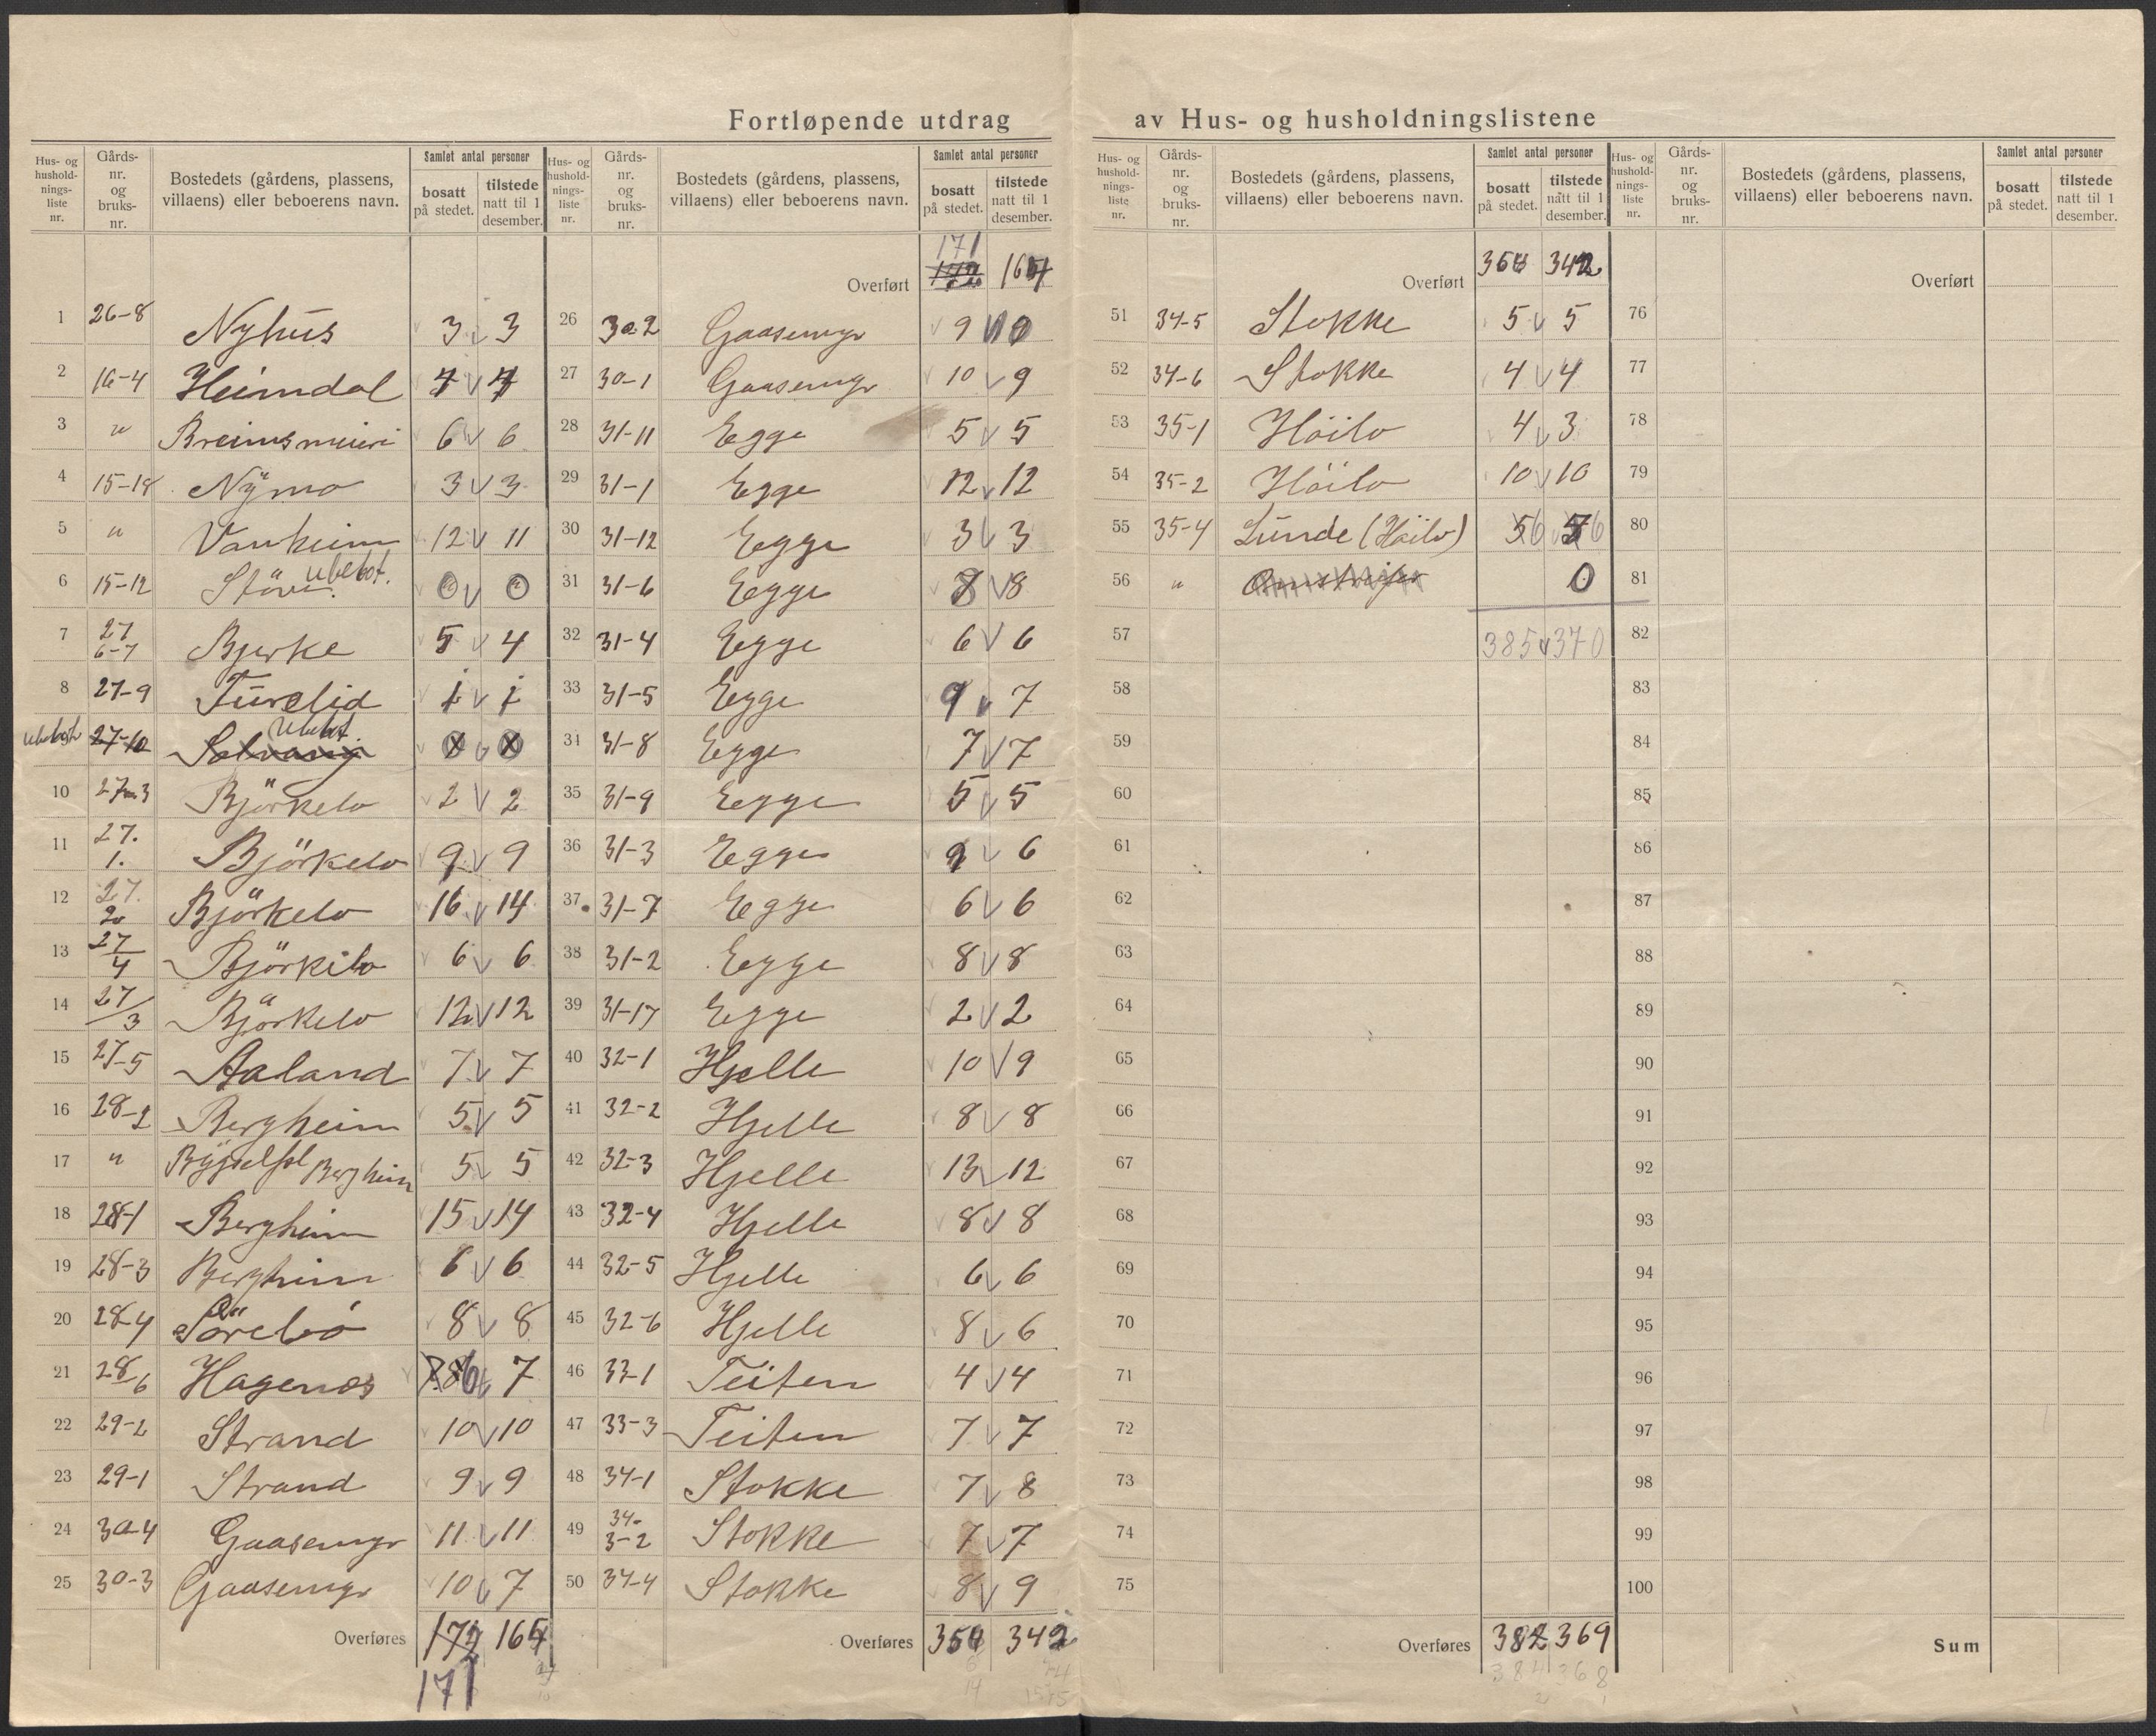 Fortløpende utdrag av Hus- og husholdningslistene
Hus- og hushold- nings- liste nr. | Gårds- nr. og bruks- nr. | Bostedets (gårdens, plassens, villaens) eller beboerens navn. | Samlet antal personer | bosatt på stedet. | tilstede natt til 1 desember.
1 26-8 Nyhus 3 v 3
2 16-4 Heimdal 7 v 7
3 " Breimsmeieri 6 v 6
4 15-18 Nÿmo 3 v 3
5 " Vanheim 12 v 11
6 15-12 Ubebot. 0 v 0
7 27 6-7 Bjerke 5 v 4
8 27-9 Turelid 1 v 1
Ubebodt 27-10 Solvang Ubebot. 0 v 0
10 27-3 Björkelo 2 v 2
11 27. 1. Björkelo 9 v 9
12 27. 20 Björkelo 16 v 14
13 27/4 Björkelo 6 v 6
14 27/3 Björkelo 12 v 12
15 27-5 Aaland 7 v 7
16 28-2 Bergheim 5 v 5
17 " Bergheim 5 v 5
18 28-1 Bergheim 15 v 14
19 28-3 Bergheim 6 v 6
20 28-4 Sörebö 8 v 8
21 28-6 Hagenos 6 v 7
22 29-2 Strand 10 v 10
23 29-1 Strand 9 v 9
24 30-4 Gaasemyr 11 v 11
25 30-3 Gaasemyr 10 v 7
Overføres 172 164
171
Hus- og hushold- nings- liste nr. | Gårds- nr. og bruks- nr. | Bostedets (gårdens, plassens, villaens) eller beboerens navn. | Samlet antal personer | bosatt på stedet. | tilstede natt til 1 desember.
171
Overført 172 164
26 30-2 Gaasemyr 9 v
27 30-1 Gaasemyr 10 v 9
28 31-11 Egge 5 v 5
29 31-1 Egge 12 v 12
30 31-12 Egge 3 v 3
31 31-6 Egge 8 v 8
32 31-4 Egge 6 v 6
33 31-5 Egge 9 v 7
34 31-8 Egge 7 v 7
35 31-9 Egge 5 v 5
36 31-3 Egge 9 v 6
37 31-7 Egge 6 v 6
38 31-2 Egge 8 v 8
39 31-17 Egge 2 v 2
40 32-1 Hjelle 10 v 9
41 32-2 Hjelle 8 v 8
42 32-3 Hjelle 13 v 12
43 32-4 Hjelle 8 v 8
44 32-5 Hjelle 6 v 6
45 32-6 Hjelle 8 v 6
46 33-1 Teiten 4 v 4
47 33-3 Teiten 7 v 7
48 34-1 Stokke 7 v 8
49 34- 3-2 Stokke 7 v 7
50 34-4 Stokke 8 v 9
Overføres 354 342
Hus- og hushold- nings- liste nr. | Gårds- nr. og bruks- nr. | Bostedets (gårdens, plassens, villaens) eller beboerens navn. | Samlet antal personer | bosatt på stedet. | tilstede natt til 1 desember.
Overført 354 342
51 34-5 Stokke 5 v 5
52 34-6 Stokke 4 v 4
53 35-1 Höilo 4 v 3
54 35-2 Höilo 10 v 10
55 35-4 Lunde (Höilo) 5 6 v 5 6
56 " 0
57 385 v 370
58
59
60
61
62
63
64
65
66
67
68
69
70
71
72
73
74
75
Overføres 382 369
384 368
Hus- og hushold- nings- liste nr. | Gårds- nr. og bruks- nr. | Bostedets (gårdens, plassens, villaens) eller beboerens navn. | Samlet antal personer | bosatt på stedet. | tilstede natt til 1 desember.
Overført
76
77
78
79
80
81
82
83
84
85
86
87
88
89
90
91
92
93
94
95
96
97
98
99
100
Sum